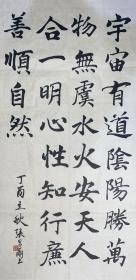 宇宙有道陰陽勝萬
物無虞水火安天人
合一明心性知行廉
善順自然
丁酉立秋張